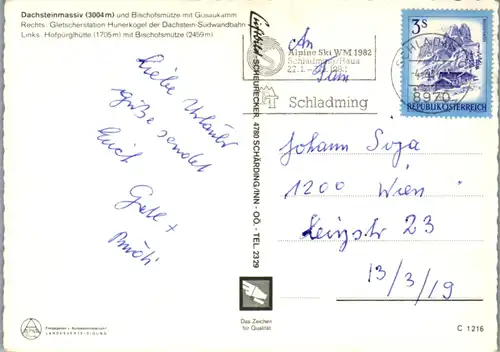 Dachsteinmassiv (3004m) und Bischofsmütze mit Gosaukamm
Rechts: Gletscherstation Hunerkogel der Dachstein-Südwandbahn
Links: Hofpürglhütte (1705m) mit Bischofsmütze (2459m)
Liebe Urlauber
grüße sendet
Euch
Luftbild SCHEURECKER, 4780 SCHÄRDING/INN - OÖ. - TEL. 2329
An
Alpine Ski WM 1982
Schladming/Haus
Schladming
3S
REPUBLIK ÖSTERREICH
SCHLADMING
8970
Johann Soja
1200 Wien
23
13/3/19
Das Zeichen
für Qualität
C 1216
LANDESVERTEIDIGUNG